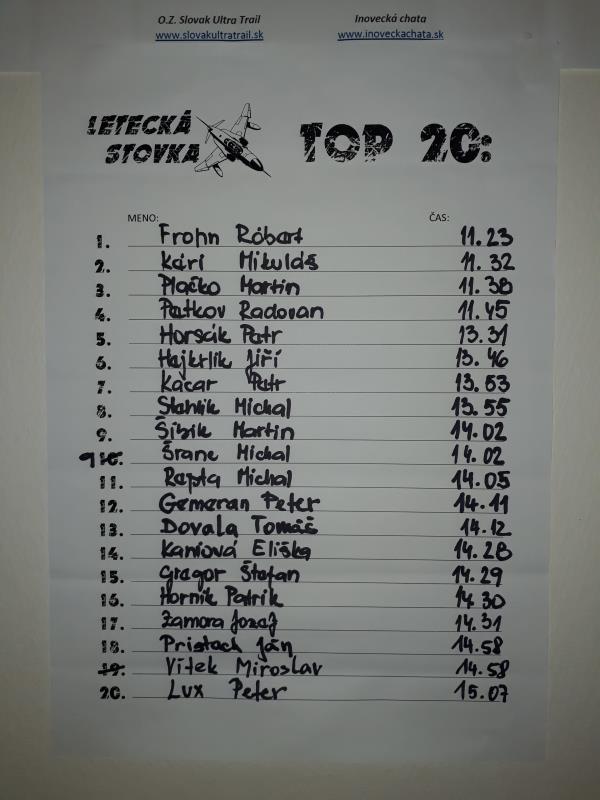 O.Z. Slovak Ultra Trail Inovecká chata
www.slovakultratrail.sk www.inoveckachata.sk
LETECKÁ
STOVKA
TOP 20:
MENO: ČAS:
1. Frohn Róbert 11.23
2. Kári Mikuláš 11.32
3. Plačko Martin 11.38
4. Patkov Radovan 11.45
5. Horsák Petr 13.31
6. Hajkrlík Jiří 13.46
7. Kacar Petr 13.53
8. Michal 13.55
9. Šibík Martin 14.02
9 10. Šranc Michal 14.02
11. Rapta Michal 14.05
12. Gemeran Peter 14.11
13. Dovala Tomáš 14.12
14. Kaniová Eliška 14.28
15. Gregor Štefan 14.29
16. Horník Patrik 14.30
17. Zamora Jozef 14.31
18. Pristach Ján 14.58
19. Vítek Miroslav 14.58
20. Lux Peter 15.07